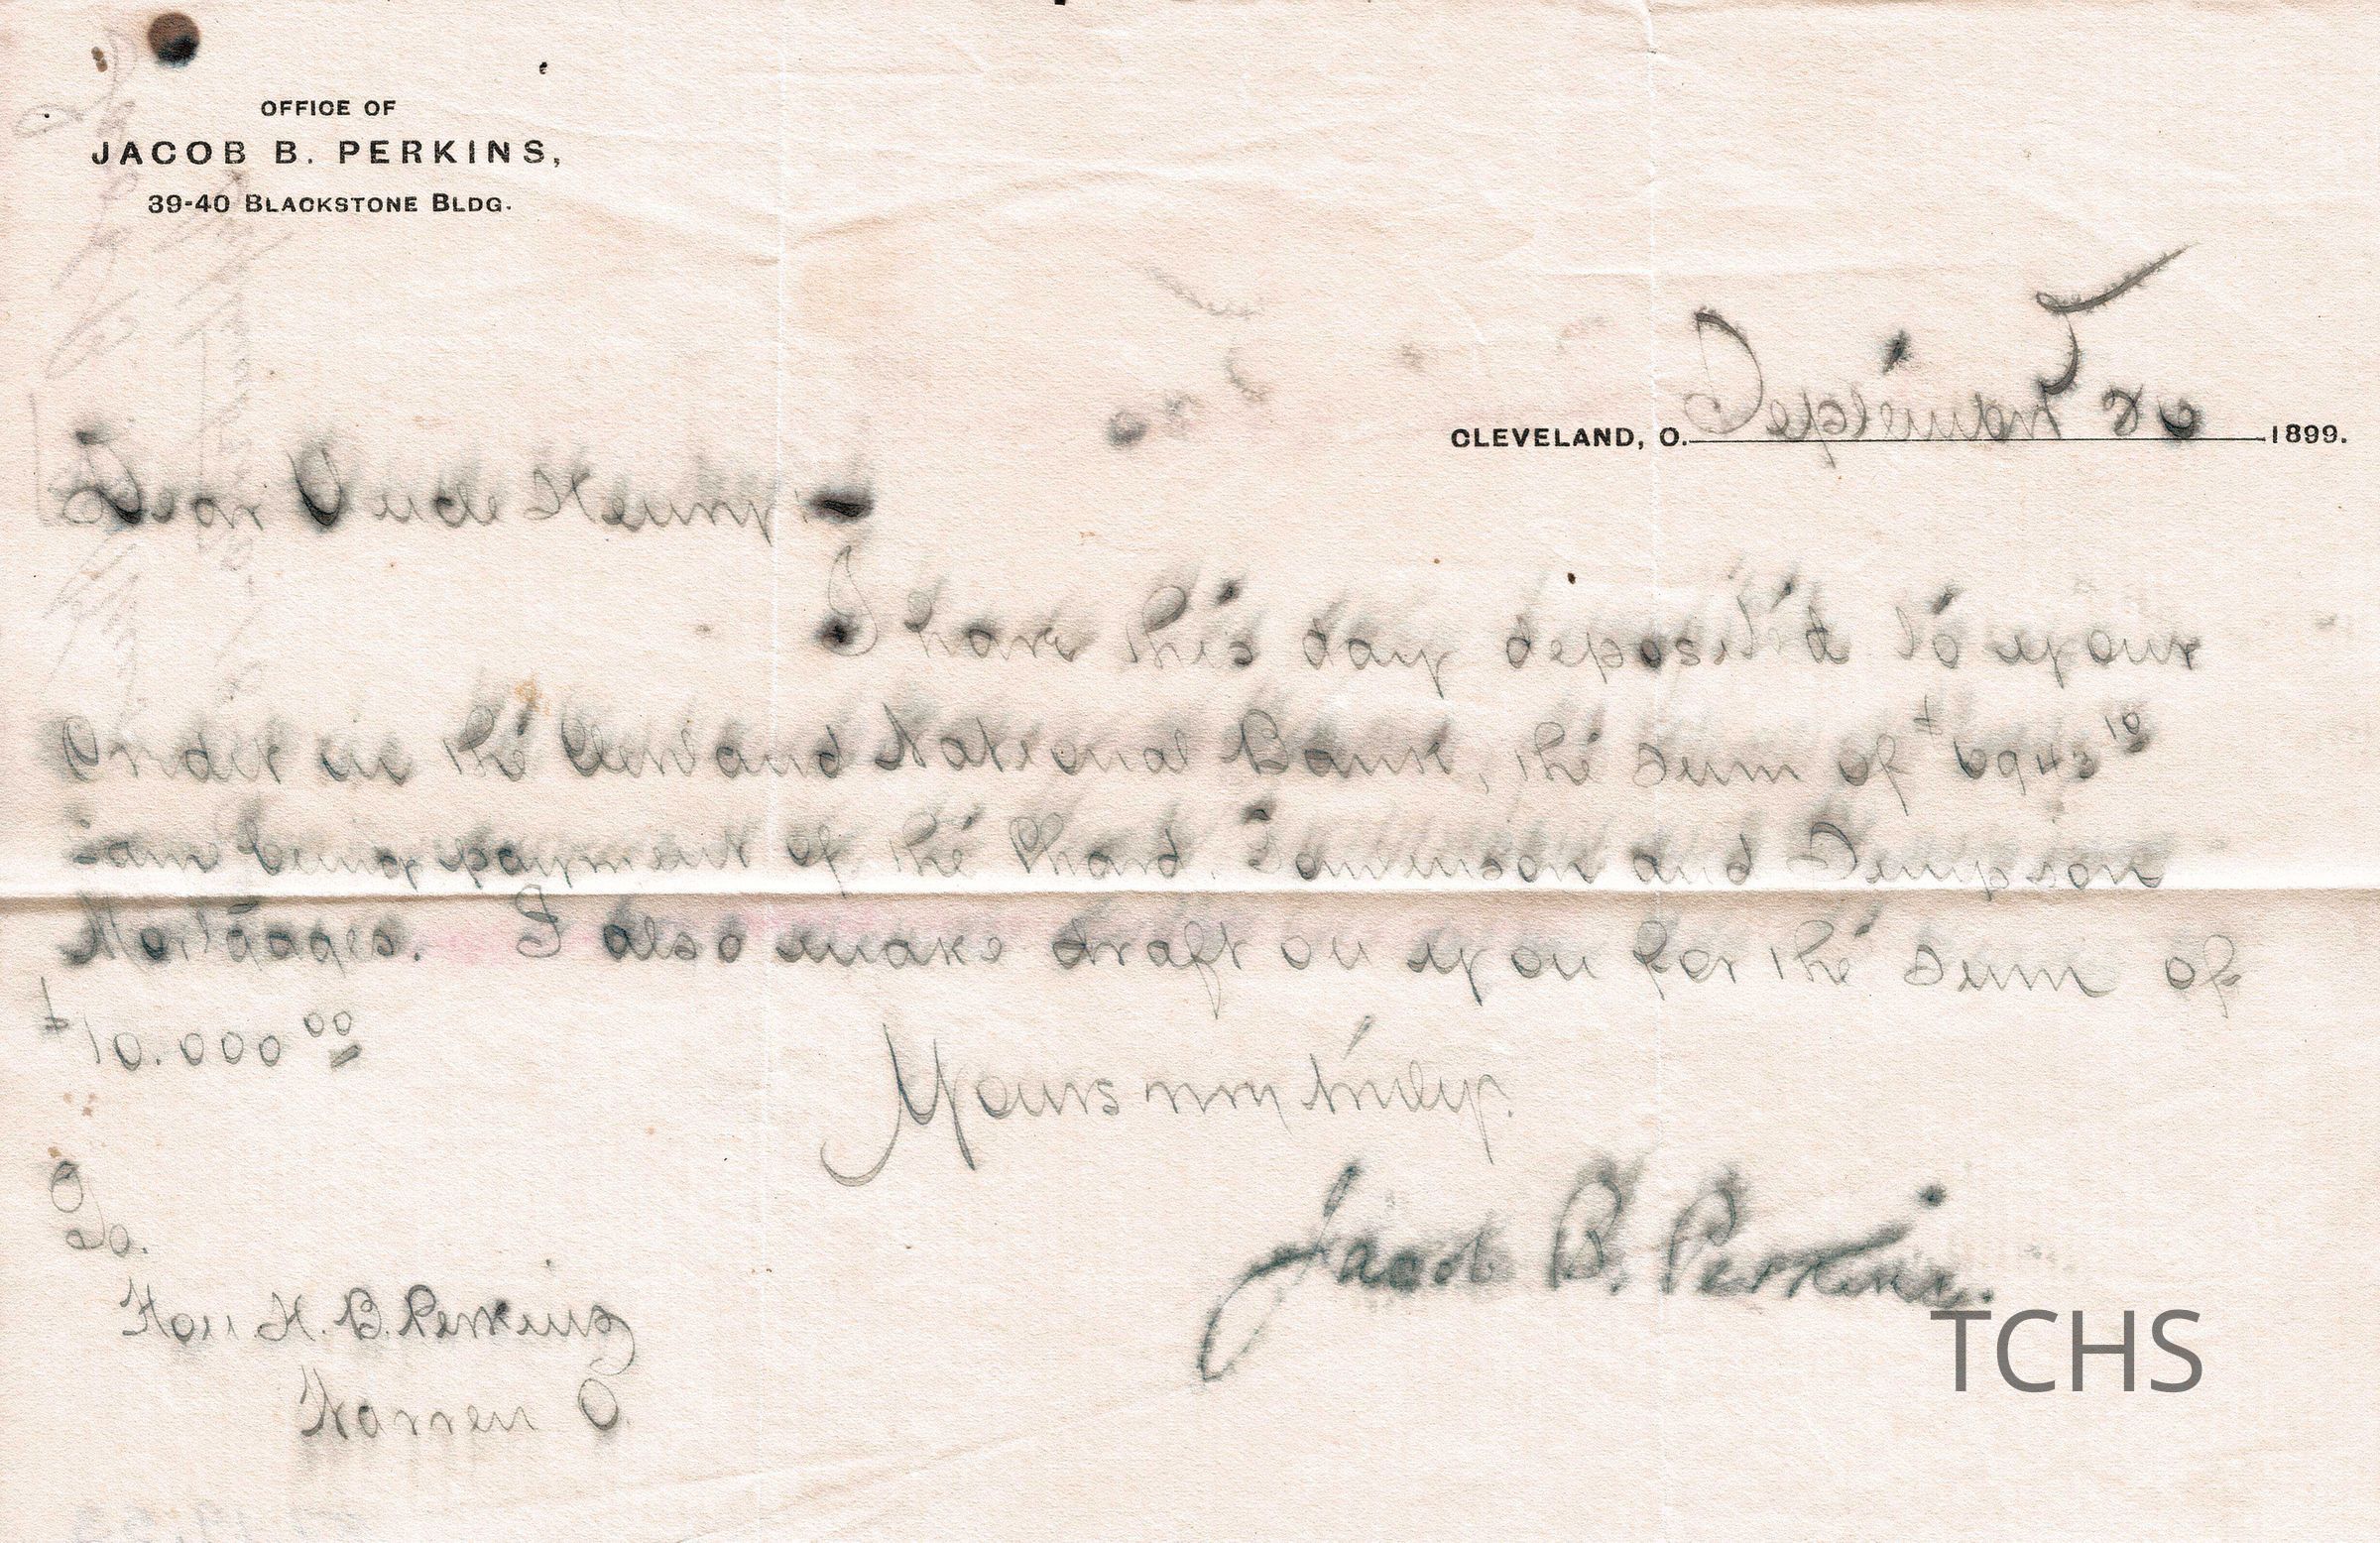 OFFICE OF
JACOB B. PERKINS,
39-40 BLACKSTONE BLDG.
CLEVELAND, O. September 1899.
Dear Uncle Henry:-
I have this day deposited to your
order in the Cleveland National Bank, the sum of $6943 10
same being payment of the and Simpson
Mortgages. I also make draft on you for the sum of
$10.000 00
Yours very truly.
Jacob B. Perkins.
To.
Hon H. B. Perkins
Warren O.
TCHS